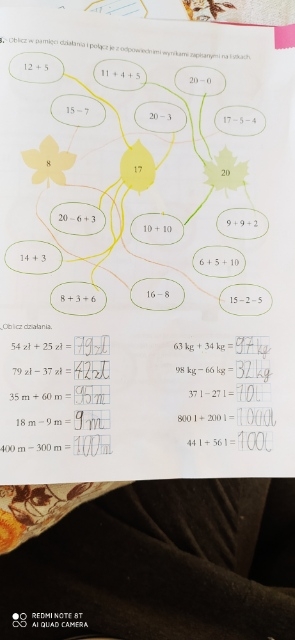 3. Oblicz w pamięci działania i połącz je z odpowiednimi wynikami zapisanymi na listkach.
12 + 5
11 + 4 + 5
20 − 0
15 − 7
20 − 3
17 − 5 − 4
8
17
20
20 − 6 + 3
10 + 10
9 + 9 + 2
14 + 3
6 + 5 + 10
8 + 3 + 6
16 − 8
15 − 2 − 5
Oblicz działania.
54 zł + 25 zł = 79 zł
63 kg + 34 kg = 97 kg
79 zł − 37 zł = 42 zł
98 kg − 66 kg = 32 kg
35 m + 60 m = 95 m
37 l − 27 l = 10 l
18 m − 9 m = 9 m
800 l + 200 l = 1000 l
400 m − 300 m = 100 m
44 l + 56 l = 100 l
REDMI NOTE 8T
AI QUAD CAMERA